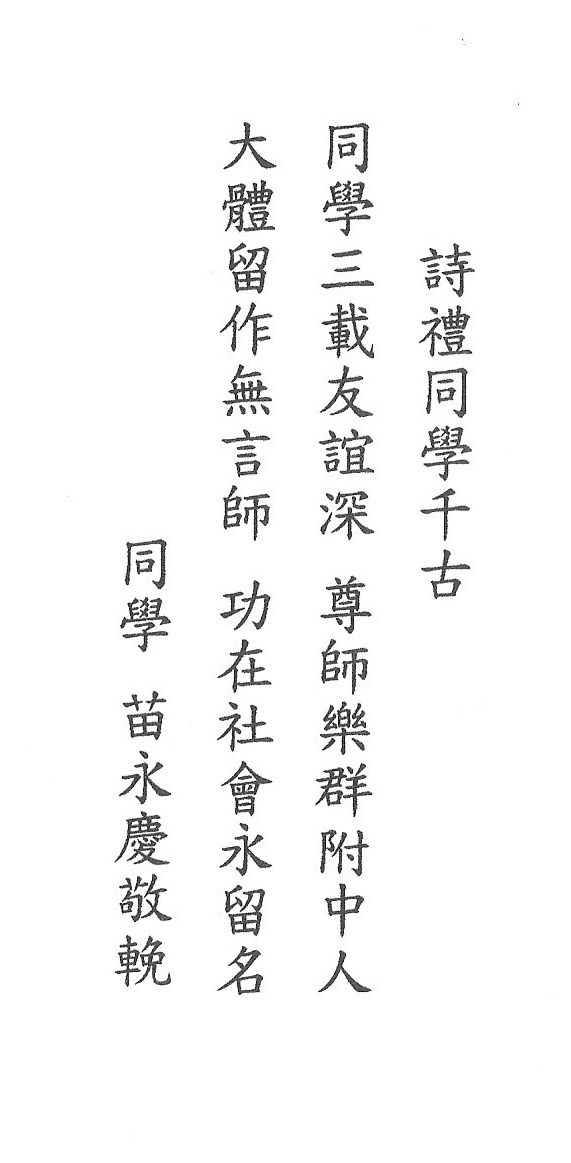 詩禮同學千古
同學三載友誼深 尊師樂群附中人
大體留作無言師 功在社會永留名
同學 苗永慶敬輓